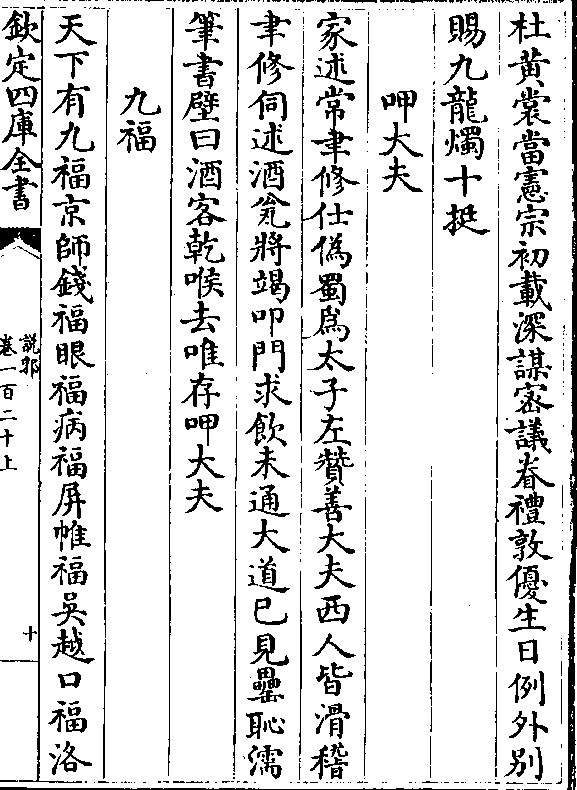 杜黃裳當憲宗初載深謀密議眷禮敦優生日例外別
賜九龍燭十挺
呷大夫
家述常聿修仕僞蜀爲太子左贊善大夫西人皆滑稽
聿修伺述酒瓮將竭叩門求飲未通大道已見罍恥濡
筆書壁曰酒客乾喉去唯存呷大夫
九福
天下有九福京師錢福眼福病福屏帷福吳越口福洛
欽定四庫全書
說郛
卷一百二十上
十